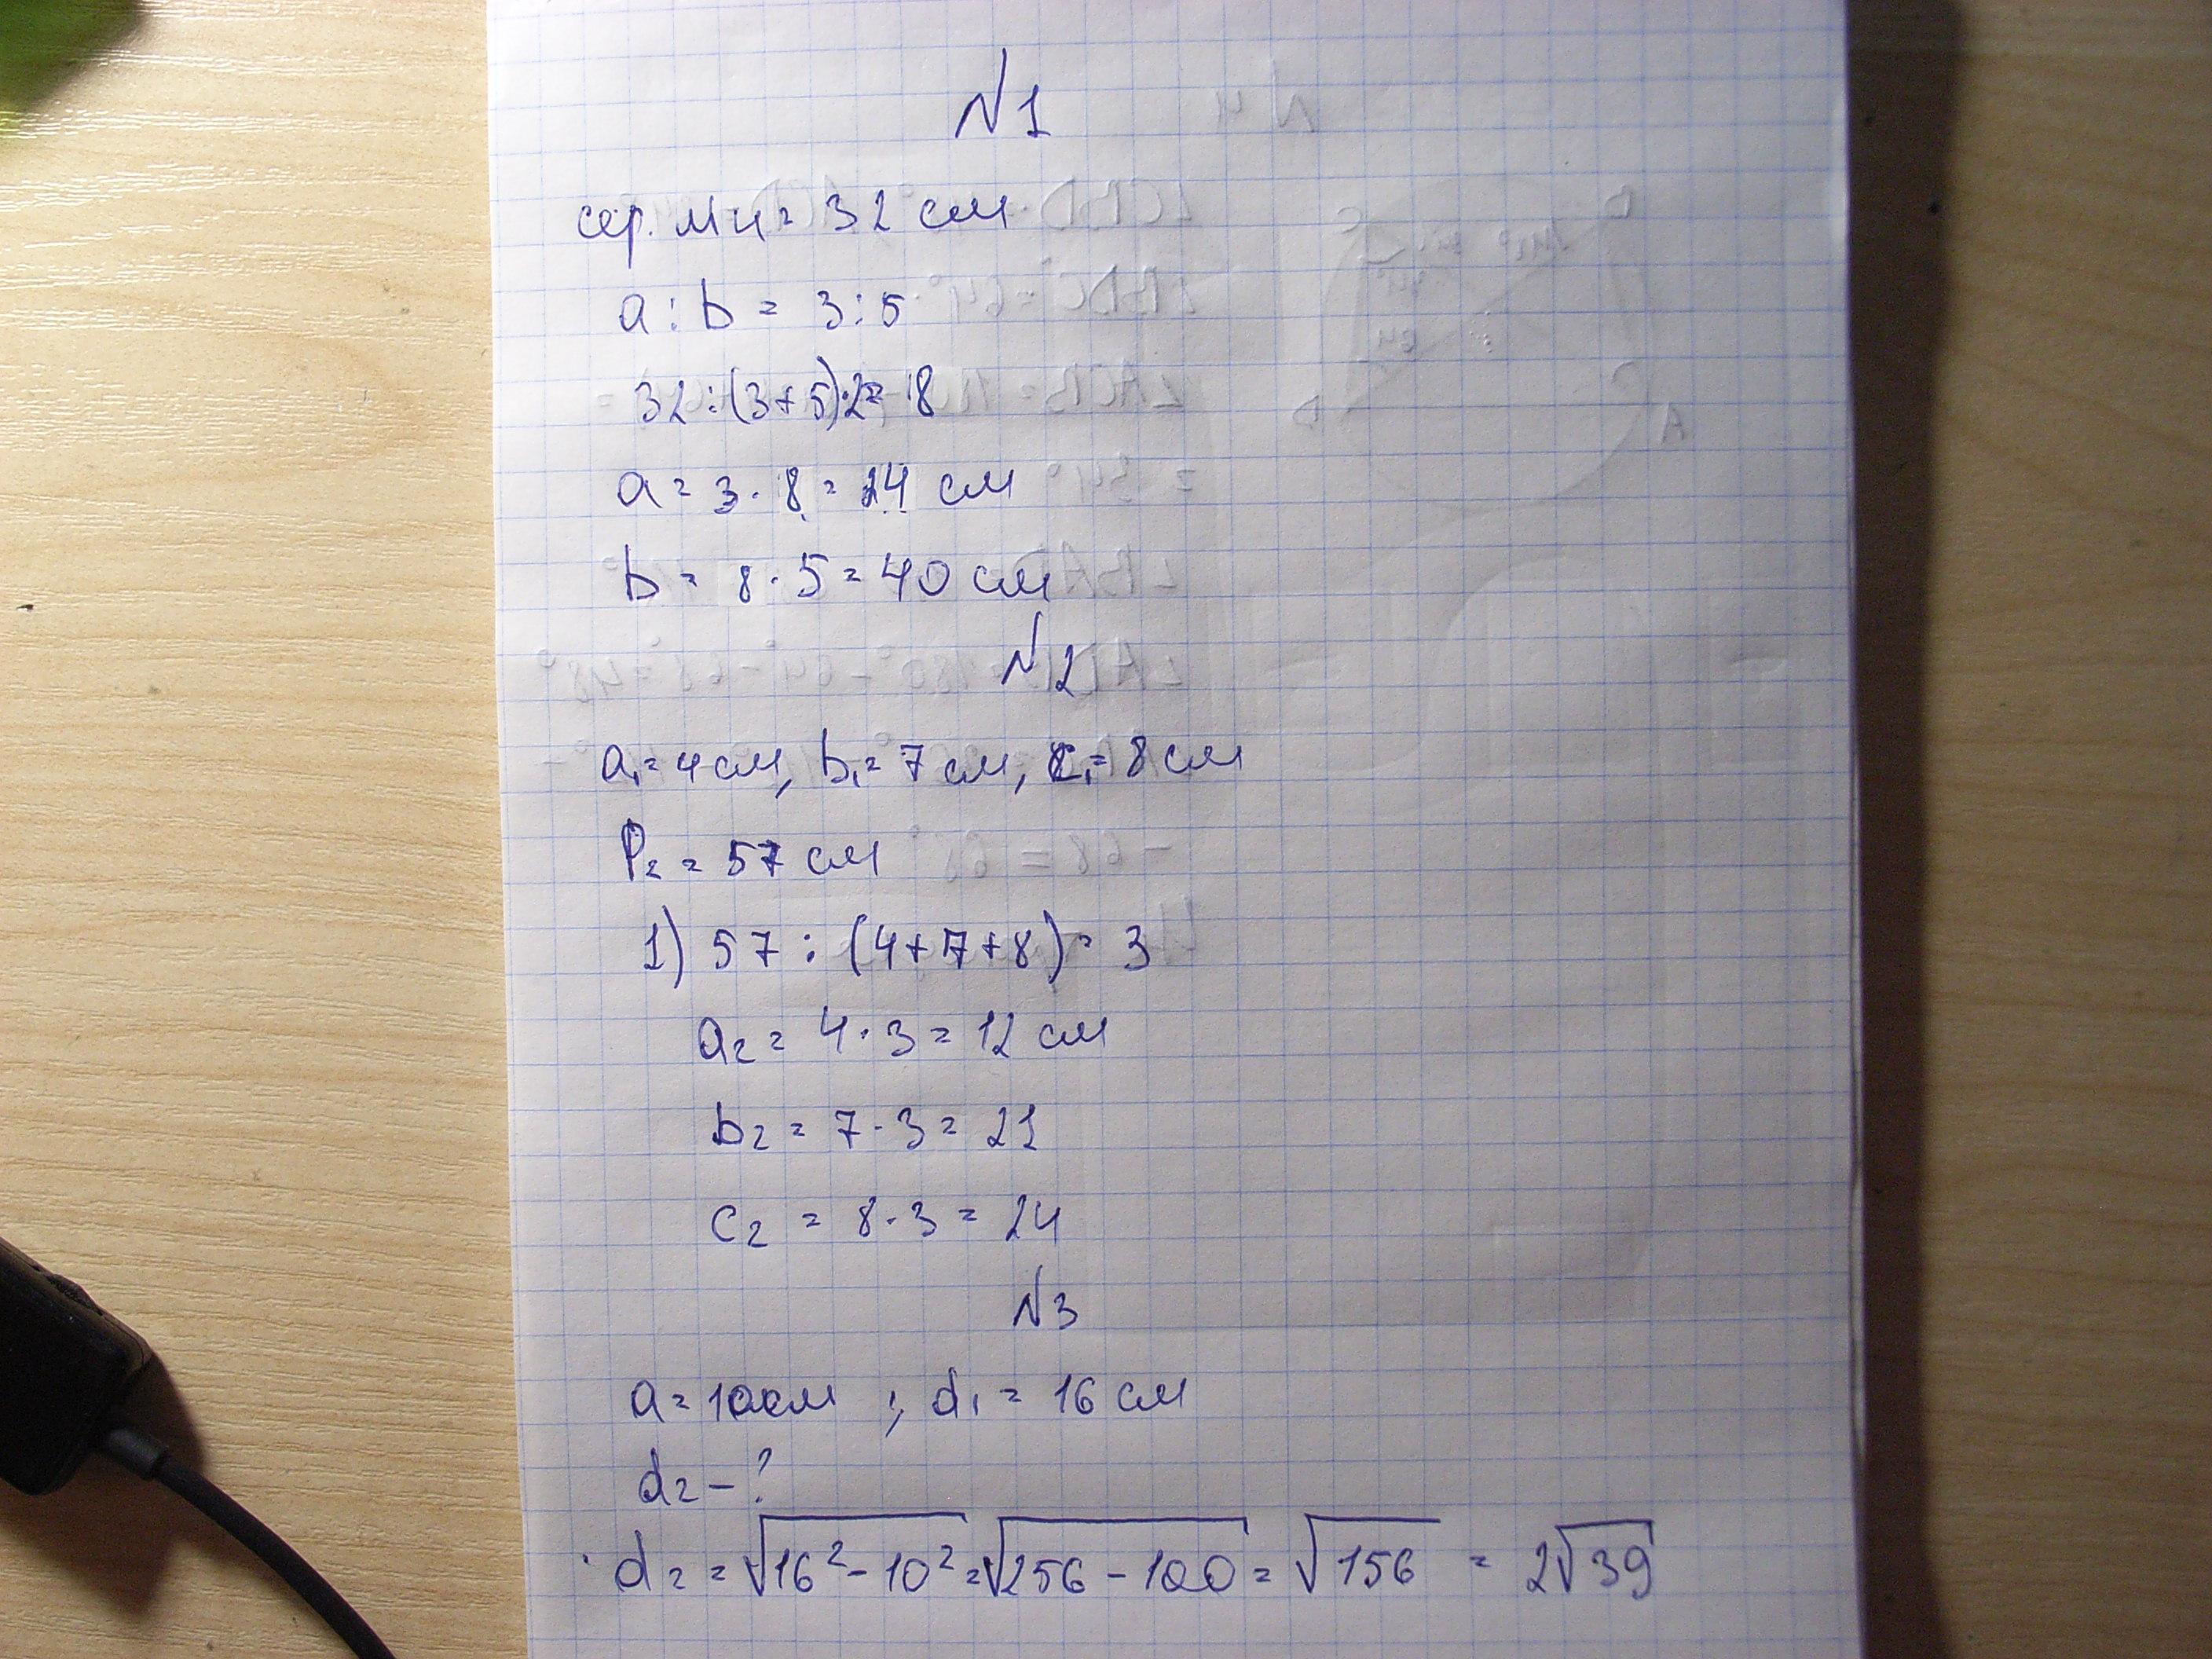 N1
сер. лін = 32 см
a : b = 3 : 5
32 : (3+5)·2 = 8
a = 3 · 8 = 24 см
b = 8 · 5 = 40 см
N2
a₁ = 4 см, b₁ = 7 см, c₁ = 8 см
P₂ = 57 см
1) 57 : (4+7+8) = 3
a₂ = 4 · 3 = 12 см
b₂ = 7 · 3 = 21
c₂ = 8 · 3 = 24
N3
a = 10 см ; d₁ = 16 см
d₂ - ?
d₂ = √16² - 10² = √256 - 100 = √156 = 2√39